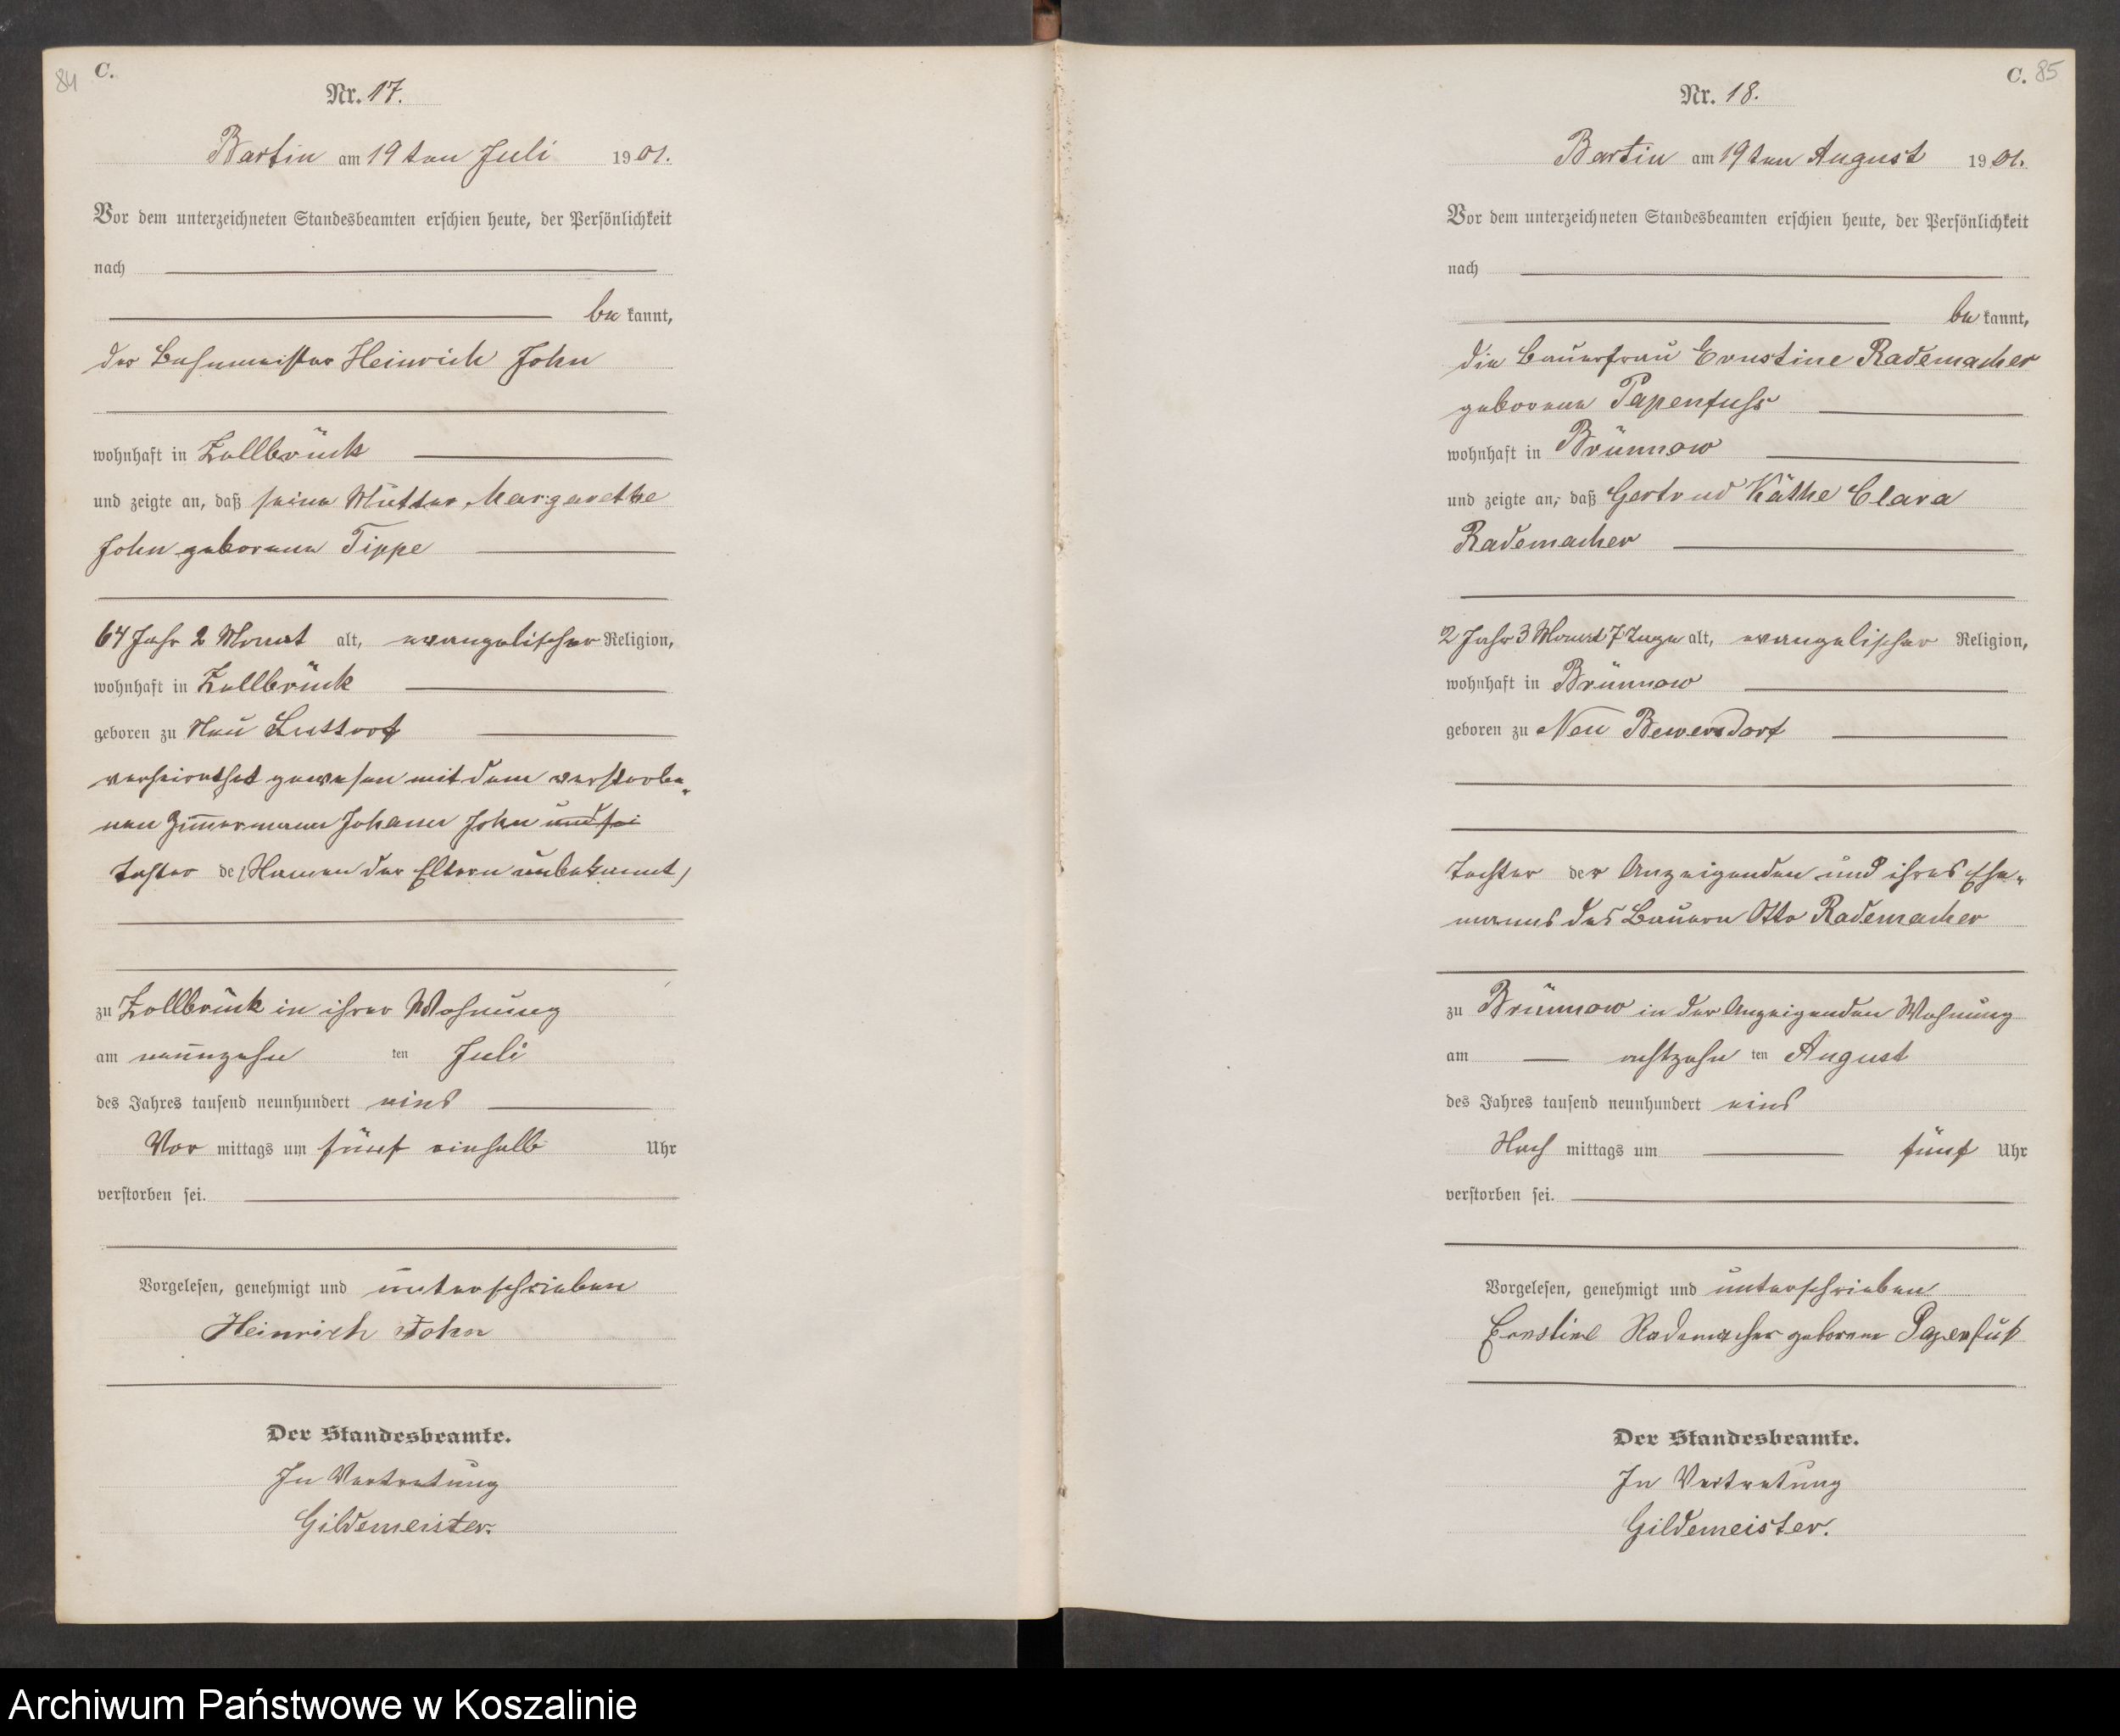 84
C.
Nr. 17.
Bartin am 19ten Juli 1901.
Vor dem unterzeichneten Standesbeamten erschien heute, der Persönlichkeit
nach
be kannt,
der Bahnmeister Heinrich John
wohnhaft in Zollbrück
und zeigte an, daß seine Mutter Margarethe
John geborene Tippe
64 Jahr 2 Monat alt, evangelischer Religion,
wohnhaft in Zollbrück
geboren zu Neu
verheirathet gewesen mit dem verstorbe-
nen Zimmermann Johann John und sei
Tochter de (Namen der Eltern unbekannt)
zu Zollbrück in ihrer Wohnung
am neunzehn ten Juli
des Jahres tausend neunhundert eins
Vor mittags um fünf einhalb Uhr
verstorben sei.
Vorgelesen, genehmigt und unterschrieben
Heinrich John
Der Standesbeamte.
In Vertretung
Gildemeister.
C. 85
Nr. 18.
Bartin am 19ten August 1901.
Vor dem unterzeichneten Standesbeamten erschien heute, der Persönlichkeit
nach
be kannt,
die Bauerfrau Ernstine Rademacher
geborene Papenfuss
wohnhaft in Brünnow
und zeigte an, daß Gertrud Käthe Clara
Rademacher
2 Jahr 3 Monat 7 Tage alt, evangelischer Religion,
wohnhaft in Brünnow
geboren zu Neu Bewersdorf
Tochter der Anzeigenden und ihres Ehe-
manns des Bauern Otto Rademacher
zu Brünnow in der Anzeigenden Wohnung
am achtzehn ten August
des Jahres tausend neunhundert eins
Nach mittags um fünf Uhr
verstorben sei.
Vorgelesen, genehmigt und unterschrieben
Ernstine Rademacher geborene Papenfuß
Der Standesbeamte.
In Vertretung
Gildemeister.
Archiwum Państwowe w Koszalinie